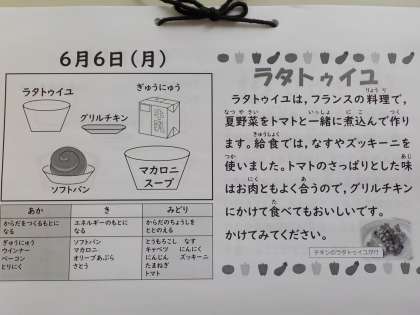 6月6日(月)
ラタトゥイユ
ぎゅうにゅう
グリルチキン
ソフトパン
マカロニ
スープ
あか き みどり
からだをつくるもとに
なる
エネルギーのもとに
なる
からだのちょうしを
ととのえる
ぎゅうにゅう
ウインナー
ベーコン
とりにく
ソフトパン
マカロニ
オリーブあぶら
さとう
とうもろこし なす
キャベツ にんにく
にんじん ズッキーニ
たまねぎ
トマト
ラタトゥイユ
ラタトゥイユは,フランスの料理で,
夏野菜をトマトと一緒に煮込んで作り
ます。給食では,なすやズッキーニを
使いました。トマトのさっぱりとした味
はお肉ともよく合うので,グリルチキン
にかけて食べてもおいしいです。
かけてみてください。
チキンのラタトゥイユがけ